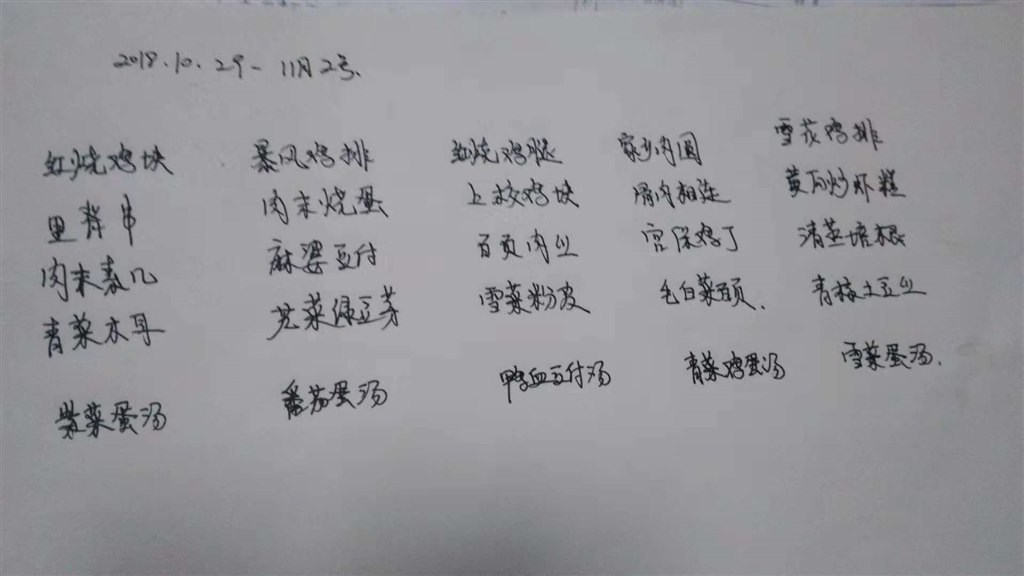 2018.10.29-11月2号.
红烧鸡块 暴风鸡排 红烧鸡腿 家乡肉圆 雪花鸡排
里脊串 肉末烧蛋 上校鸡块 骨肉相连 黄瓜炒虾糕
肉末素几 麻婆豆付 百页肉丝 宫保鸡丁 清蒸培根
青菜木耳 芹菜绿豆芽 雪菜粉皮 毛白菜百页. 青椒土豆丝
紫菜蛋汤 番茄蛋汤 鸭血豆付汤 青菜鸡蛋汤 雪菜蛋汤.